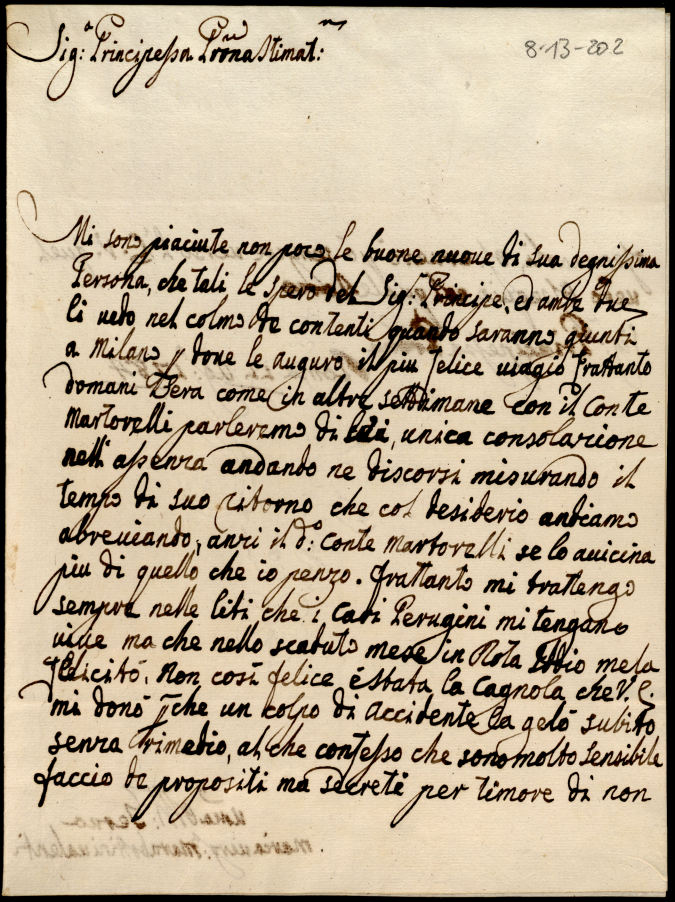 8-13-202
Sig.ra Principessa Pro͞na Stimat.ma
Mi sono piaciute non poco le buone nuove di sua degnissima
Persona, che tali le spero del Sig.r Principe, ed ambe due
li vedo nel colmo de contenti quando saranno giunti
a Milano p dove le auguro il piu felice viagio frattanto
domani Sera come in altre settimane con il Conte
Martorelli parleremo di lei, unica consolazione
nell'assenza andando ne discorsi misurando il
tempo di suo ritorno che col desiderio andiamo
abreviando, anzi il d.o Conte Martorelli se lo avicina
piu di quello che io penzo. frattanto mi trattengo
sempre nelle liti che i Cari Perugini mi tengano
vive ma che nello scaduto mese in Rota Iddio mela
felicitó. Non cosí felice é stata la Cagnola che V. E.
mi donó p che un colpo di accidente la geló subito
senza rimedio, al che confesso che sono molto sensibile
faccio de propositi ma secreti per timore di non